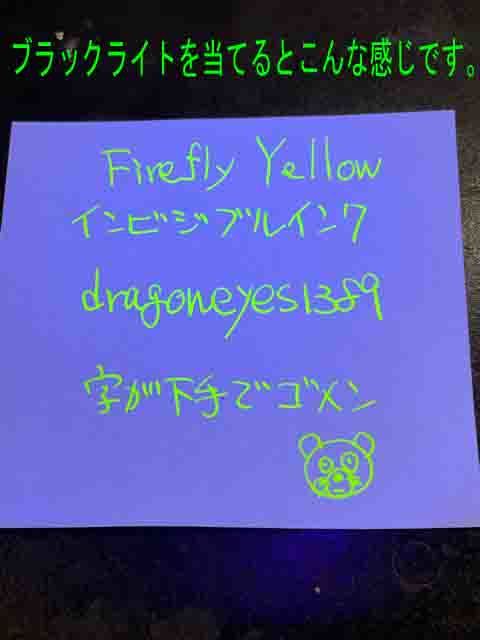 ブラックライトを当てるとこんな感じです。
Firefly Yellow
インビジブルインク
dragoneyes1389
字が下手でゴメン